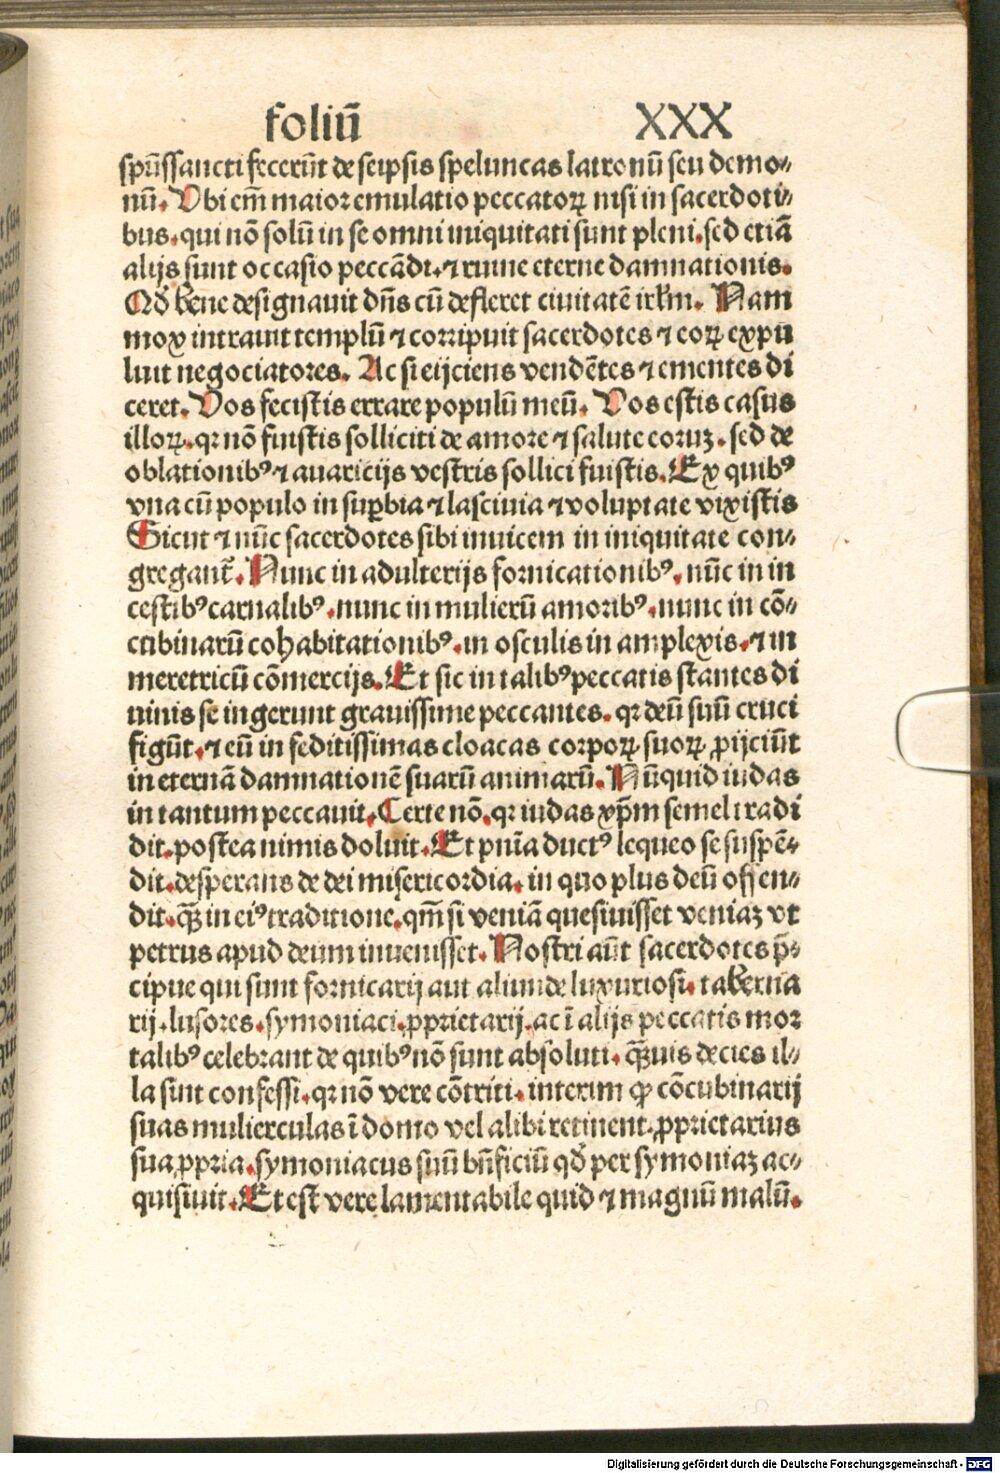 foliū XXX
spūssancti fecerūt de seipsis speluncas latronū seu demo⸗
nū. Vbi em̄ maior emulatio peccatoꝝ nisi in sacerdoti⸗
bus. qui nō solū in se omni iniquitati sunt pleni. sed etiā
alijs sunt occasio peccādi. ⁊ ruine eterne damnationis.
Qď bene designauit dn̄s cū defleret ciuitatē irłm. Nam
mox intrauit templū ⁊ corripuit sacerdotes ⁊ eoꝝ expu
luit negociatores. Ac si eijciens vendētes ⁊ ementes di
ceret. Vos fecistis errare populū meū. Vos estis casus
illoꝝ. qꝛ nō fuistis solliciti de amore ⁊ salute eoruꝫ. sed de
oblationibꝰ ⁊ auaricijs vestris sollici fuistis. Ex quibꝰ
vna cū populo in suꝑbia ⁊ lasciuia ⁊ voluptate vixistis
Sicut ⁊ nūc sacerdotes sibi inuicem in iniquitate con⸗
gregant̄. Nunc in adulterijs fornicationibꝰ. nūc in in
cestibꝰ carnalibꝰ. nunc in mulierū amoribꝰ. nunc in cō⸗
cubinarū cohabitationibꝰ. in osculis in amplexis. ⁊ in
meretricū cōmercijs. Et sic in talibꝰ peccatis stantes di
uinis se ingerunt grauissime peccantes. qꝛ deū suū cruci
figūt. ⁊ eū in feditissimas cloacas corpoꝝ suoꝝ ꝓijciūt
in eternā damnationē suarū animarū. Nūquid iudas
in tantum peccauit. Certe nō. qꝛ iudas xp̄m semel tradi
dit. postea nimis doluit. Et pn̄ia ductꝰ lequeo se suspē⸗
dit. desperans de dei misericordia. in quo plus deū offen⸗
dit. qꝫ̄ in eiꝰ traditione. qm̄ si veniā quesiuisset veniaꝫ vt
petrus apud deum inuenisset. Nostri aūt sacerdotes p̄⸗
cipue qui sunt fornicarij aut aliunde luxuriosi. taberna
rij. lusores. symoniaci. ꝓprietarij. ac ī alijs peccatis mor
talibꝰ celebrant de quibꝰ nō sunt absoluti. qꝫ̄uis decies il⸗
la sint confessi. qꝛ nō vere cōtriti. interim ꝙ cōcubinarij
suas mulierculas ī domo vel alibi retinent. ꝓprietarius
sua ꝓpria. symoniacus suū bn̄ficiū qď per symoniaꝫ ac⸗
quisiuit. Et est vere lamentabile quid ⁊ magnū malū.
Digitalisierung gefördert durch die Deutsche Forschungsgemeinschaft - DFG